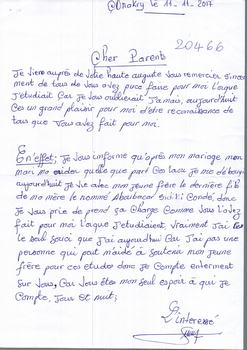 Conakry le 11-11-2017
20466
Cher Parents
Je viens auprès de votre haute auguste vous remercier
ment de tous de vous avez pure faire pour moi laque
J'étudiait Car Je vous oublierait Jamais, aujourd'hui
Ces un grand plaisir pour moi d'être reconaisance de
tous que vous avez fait pour moi.
En effet; Je vous informe qu'après mon mariage mon
mari quelque part Ces laou Je me
aujourd'hui Je vie avec mon jeune frère le dernière fils
de mo mère le nommé Aboubacar Sidiki Condé, donc
Je vous prie de prend sa Charge Comme vous l'avez
fait pour moi laque J'étudiaient, vraiment J'ai
le seul souci que J'ai aujourd'hui Car J'ai pas une
personne qui peut m'aidé à soutenu mon Jeune
frère pour ces études donc Je Compte entierment
sur vous, Car vous êtes mon seul espoir à qui Je
Compte, Jour et nuit;
L'interessé